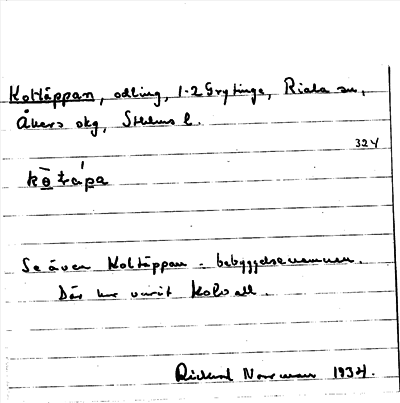 Koltäppan, odling, 1-2 Grytinge, Riala sn,
Åkers skg, Sthlms l.
324
Se även Koltäppan - bebyggelsenamnen.
Där har varit
Rickard Norrman 1934.